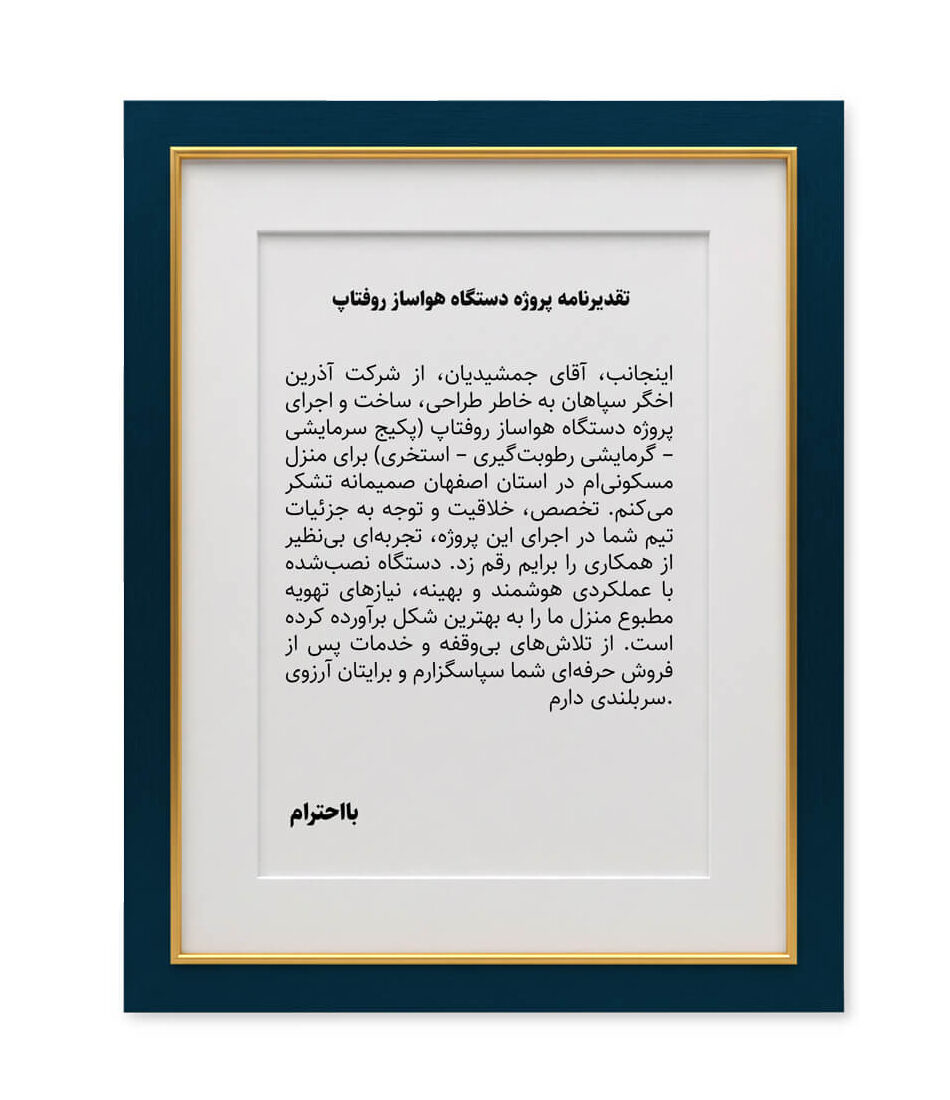 تقدیرنامه پروژه دستگاه هواساز روفتاپ
اینجانب، آقای جمشیدیان، از شرکت آذرین
اخگر سپاهان به خاطر طراحی، ساخت و اجرای
پروژه دستگاه هواساز روفتاپ (پکیج سرمایشی
– گرمایشی رطوبت‌گیری – استخری) برای منزل
مسکونی‌ام در استان اصفهان صمیمانه تشکر
می‌کنم. تخصص، خلاقیت و توجه به جزئیات
تیم شما در اجرای این پروژه، تجربه‌ای بی‌نظیر
از همکاری را برایم رقم زد. دستگاه نصب‌شده
با عملکردی هوشمند و بهینه، نیازهای تهویه
مطبوع منزل ما را به بهترین شکل برآورده کرده
است. از تلاش‌های بی‌وقفه و خدمات پس از
فروش حرفه‌ای شما سپاسگزارم و برایتان آرزوی
.سربلندی دارم
بااحترام